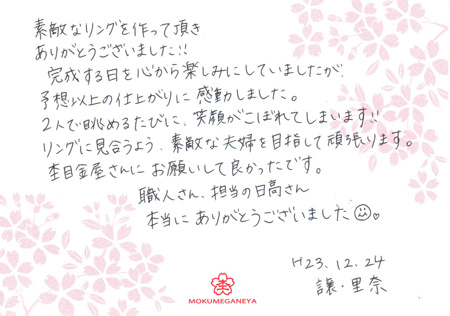 素敵なリングを作って頂き
ありがとうございました!!
完成する日を心から楽しみにしていましたが、
予想以上の仕上がりに感動しました。
2人で眺めるたびに、笑顔がこぼれてしまいます!!
リングに見合うよう、素敵な夫婦を目指して頑張ります。
杢目金屋さんにお願いして良かったです。
職人さん、担当の日高さん
本当にありがとうございました
H23.12.24
譲・里奈
MOKUMEGANEYA